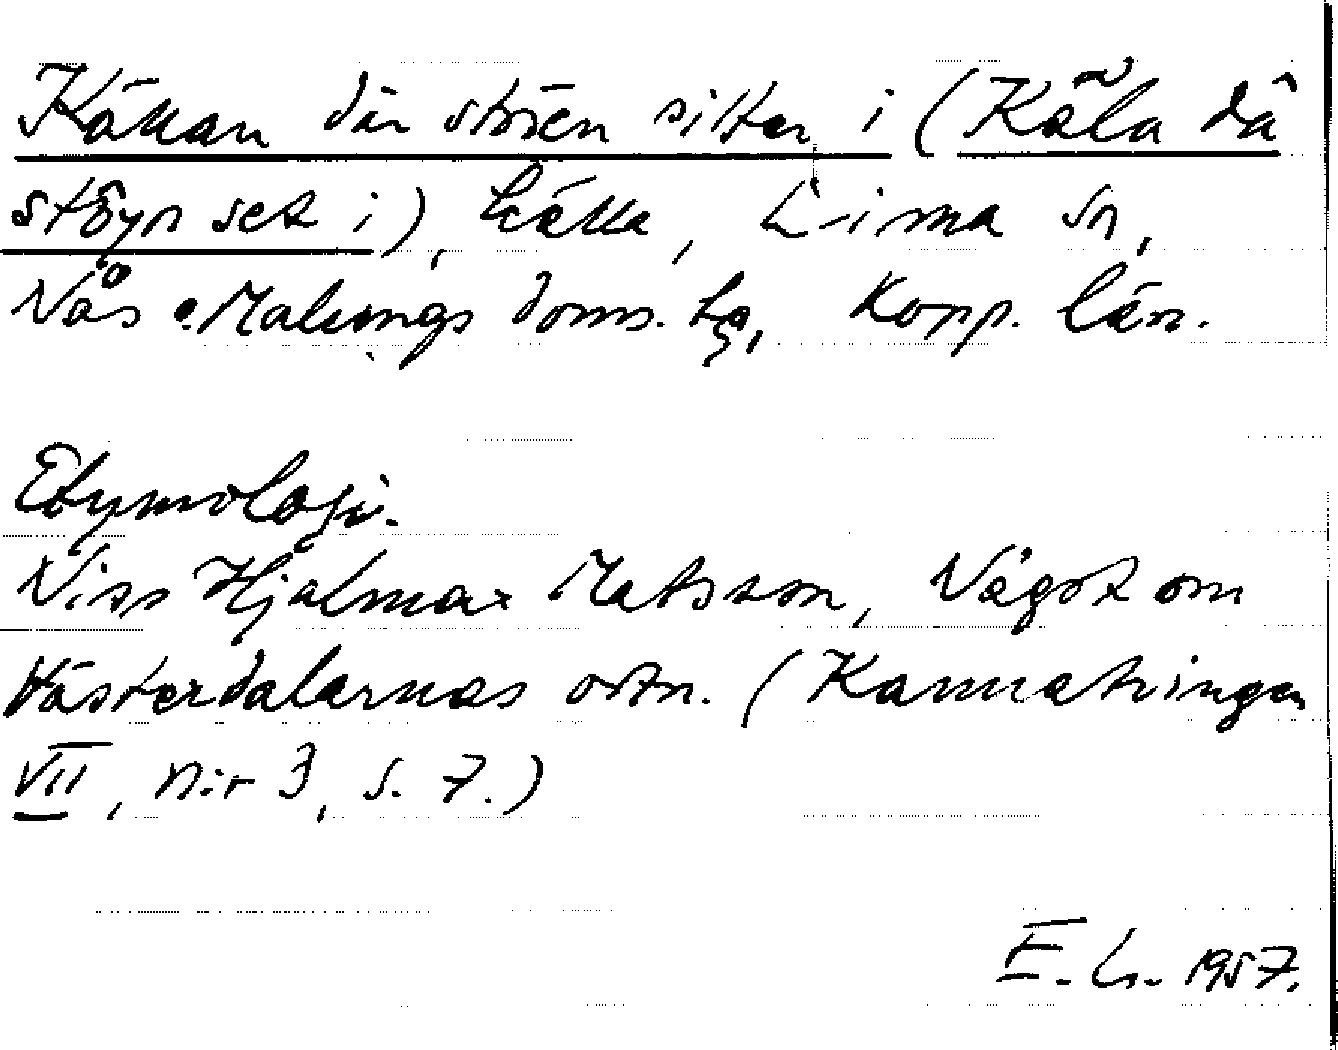 Källan där stören sitter i (Käla då
stöyn set i), källa, Lima sn,
Nås o. Malungs doms. hg, Kopp. län.
Etymologi.
Niss Hjalmar Matsson, Något om
Västerdalarnas ortn. (Kannatringen
VII, n:r 3, s. 7.)
E. L. 1957.